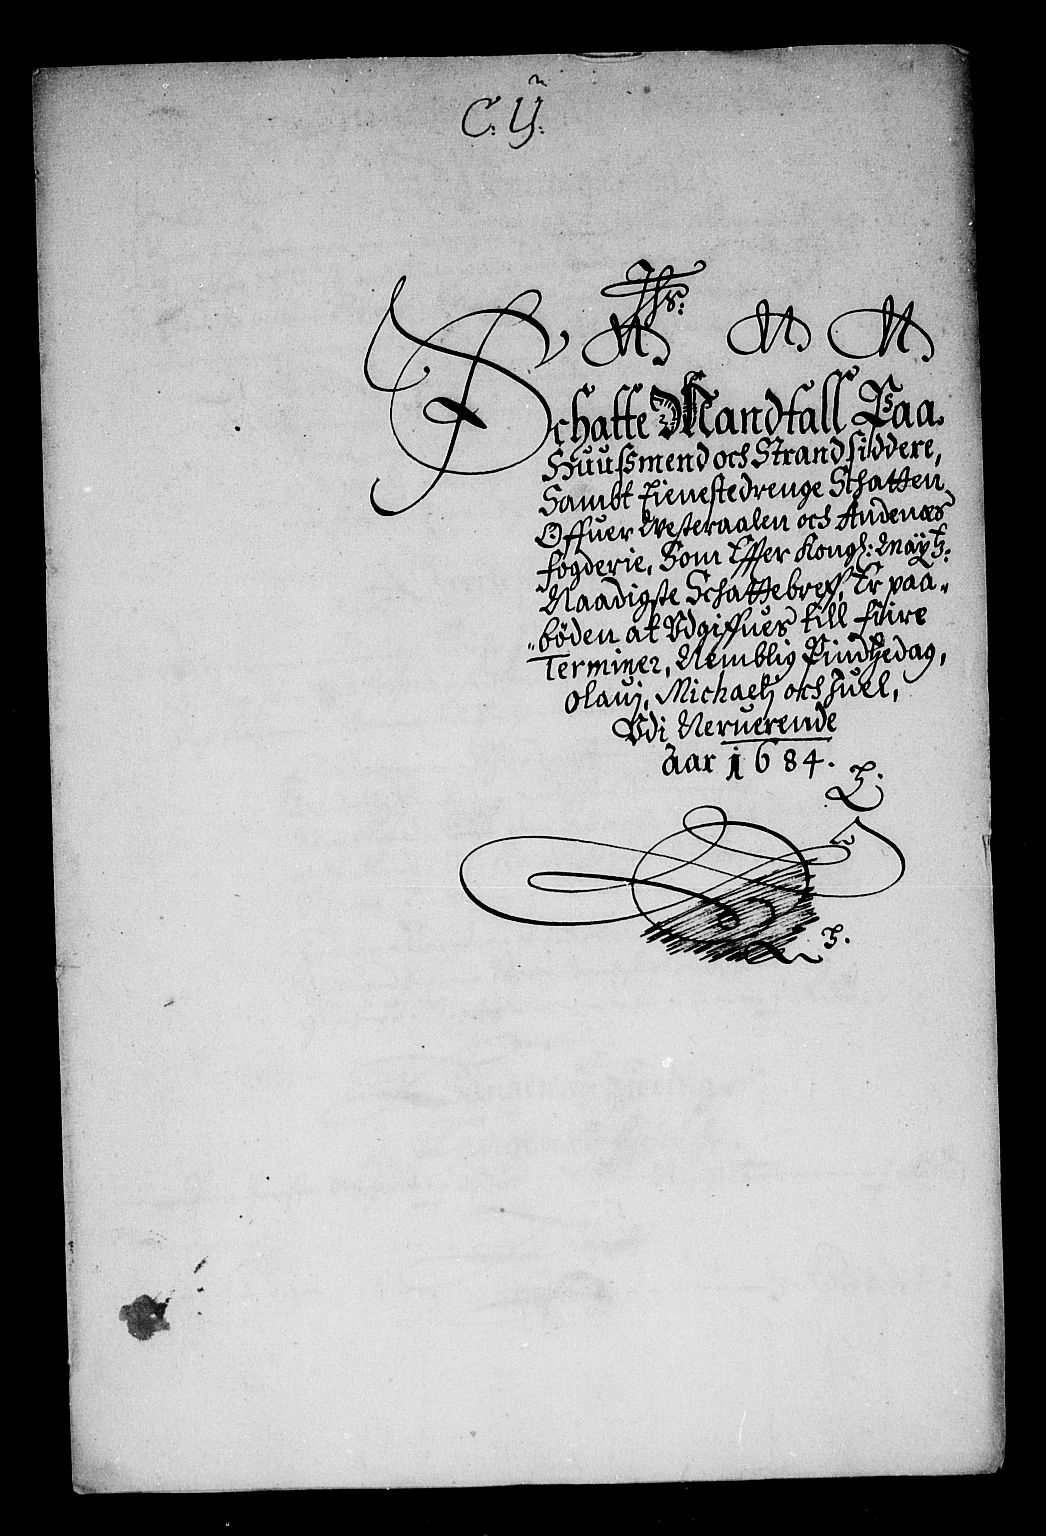 C. Ÿ.
Jhs:
N N N
Schatte Mandtall Paa
Huussmend och Strandsiddere,
Sambt Tienestedrenge Schatten
Offuer Westeraalen och Andenæs
fogderie, Som Effter Kongl: Maÿtz:
Naadigste Schattebreff, Er paa„
„böden at Udgiffues till fiire
Terminer, Nemblig Pindtzedag,
Olauj, Michaelj och Juel,
Udi Neruerende
Aar 1684.